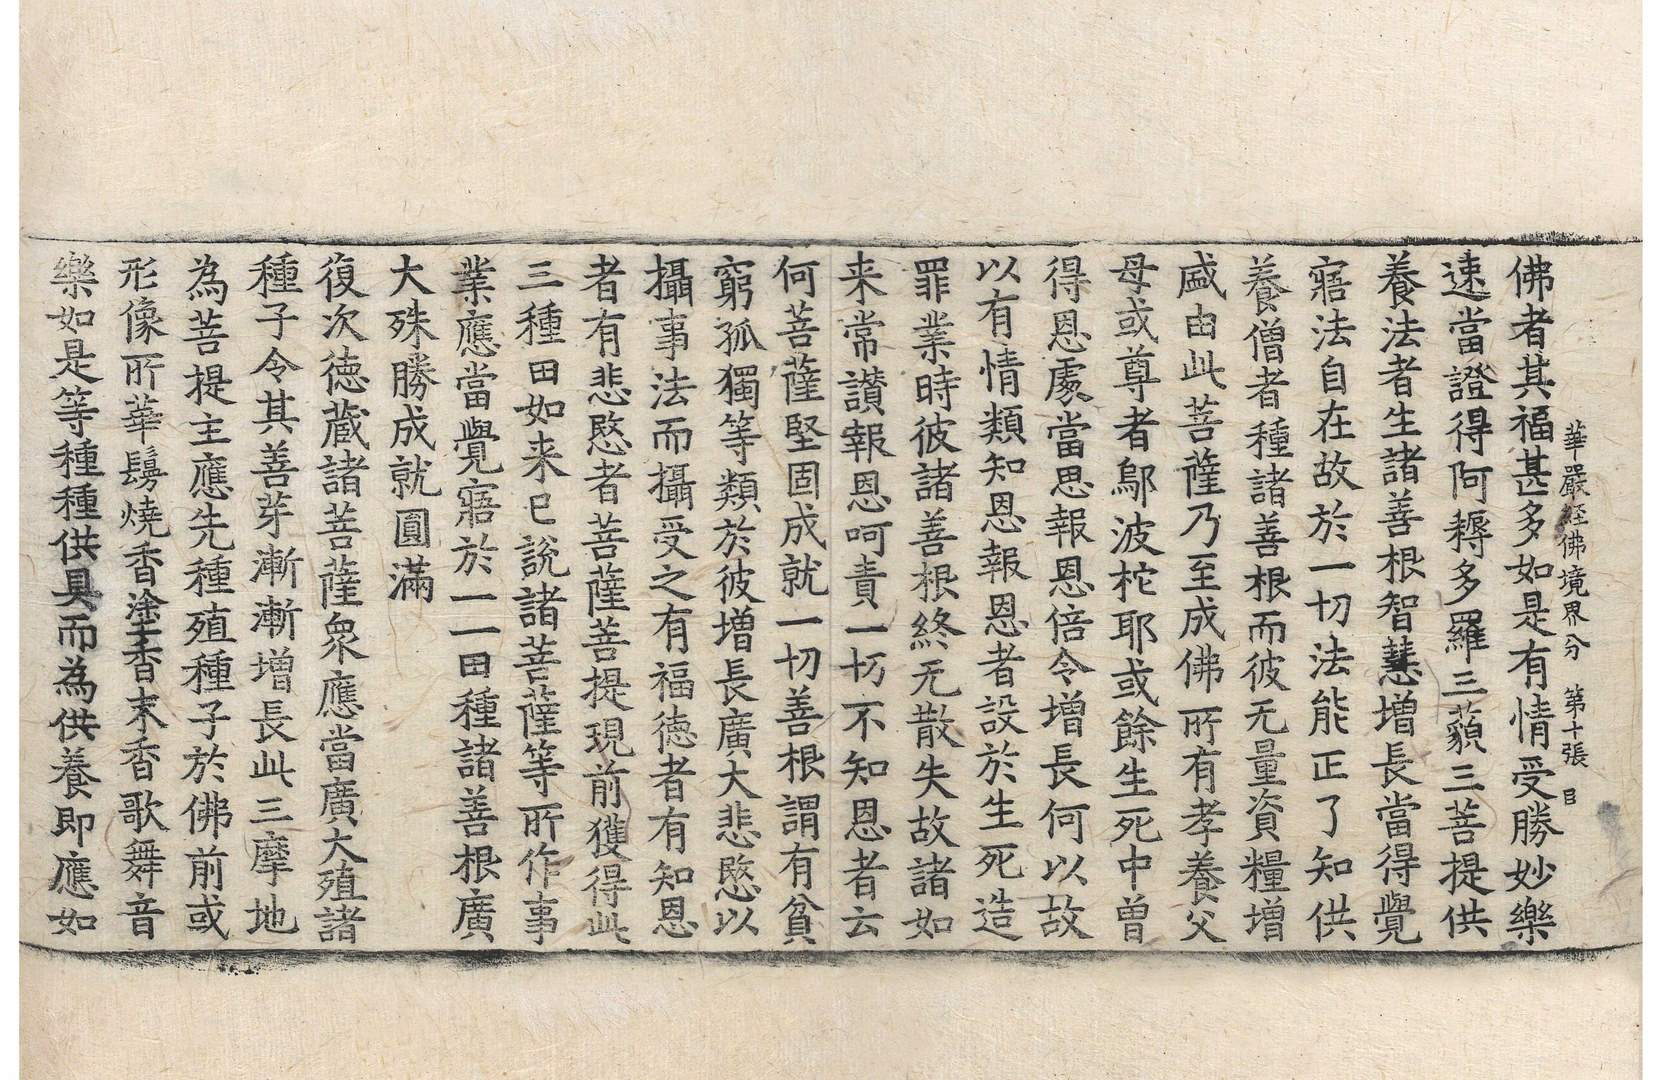 華嚴經佛境界分　第十張　目
佛者其福甚多如是有情受勝妙樂
速當證得阿耨多羅三藐三菩提供
養法者生諸善根智慧增長當得覺
寤法自在故於一切法能正了知供
養僧者種諸善根而彼无量資糧增
盛由此菩薩乃至成佛所有孝養父
母或尊者鄔波柁耶或餘生死中曾
得恩處當思報恩倍令增長何以故
以有情類知恩報恩者設於生死造
罪業時彼諸善根終无散失故諸如
来常讃報恩呵責一切不知恩者云
何菩薩堅固成就一切善根謂有貧
窮孤獨等類於彼增長廣大悲愍以
攝事法而攝受之有福德者有知恩
者有悲愍者菩薩菩提現前獲得此
三種田如来已說諸菩薩等所作事
業應當覺寤於一一田種諸善根廣
大殊勝成就圓滿
復次德蔵諸菩薩衆應當廣大殖諸
種子令其善芽漸漸增長此三摩地
為菩提主應先種殖種子於佛前或
形像所華鬘燒香塗香末香歌舞音
樂如是等種種供具而為供養即應如